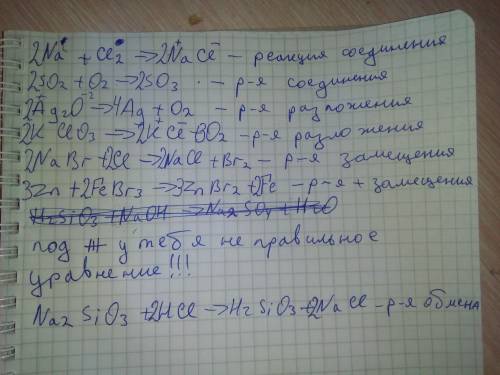 2Na⁰ + Cl₂⁰ → 2Na⁺Cl⁻ – реакция соединения
2SO₂ + O₂ → 2SO₃ – р-я соединения
2Ag₂O⁻² → 4Ag + O₂ – р-я разложения
2K⁺ClO₃ → 2K⁺Cl⁻ + 3O₂ – р-я разложения
2NaBr + 2Cl → 2NaCl + Br₂ – р-я замещения
3Zn + 2FeBr₃ → 3ZnBr₂ + 2Fe – р-я + замещения
H₂SiO₃ + NaOH → Na₂SO₄ + H₂O
под Ж у тебя не правильное
уравнение!!!
Na₂SiO₃ + 2HCl → H₂SiO₃ + 2NaCl – р-я обмена